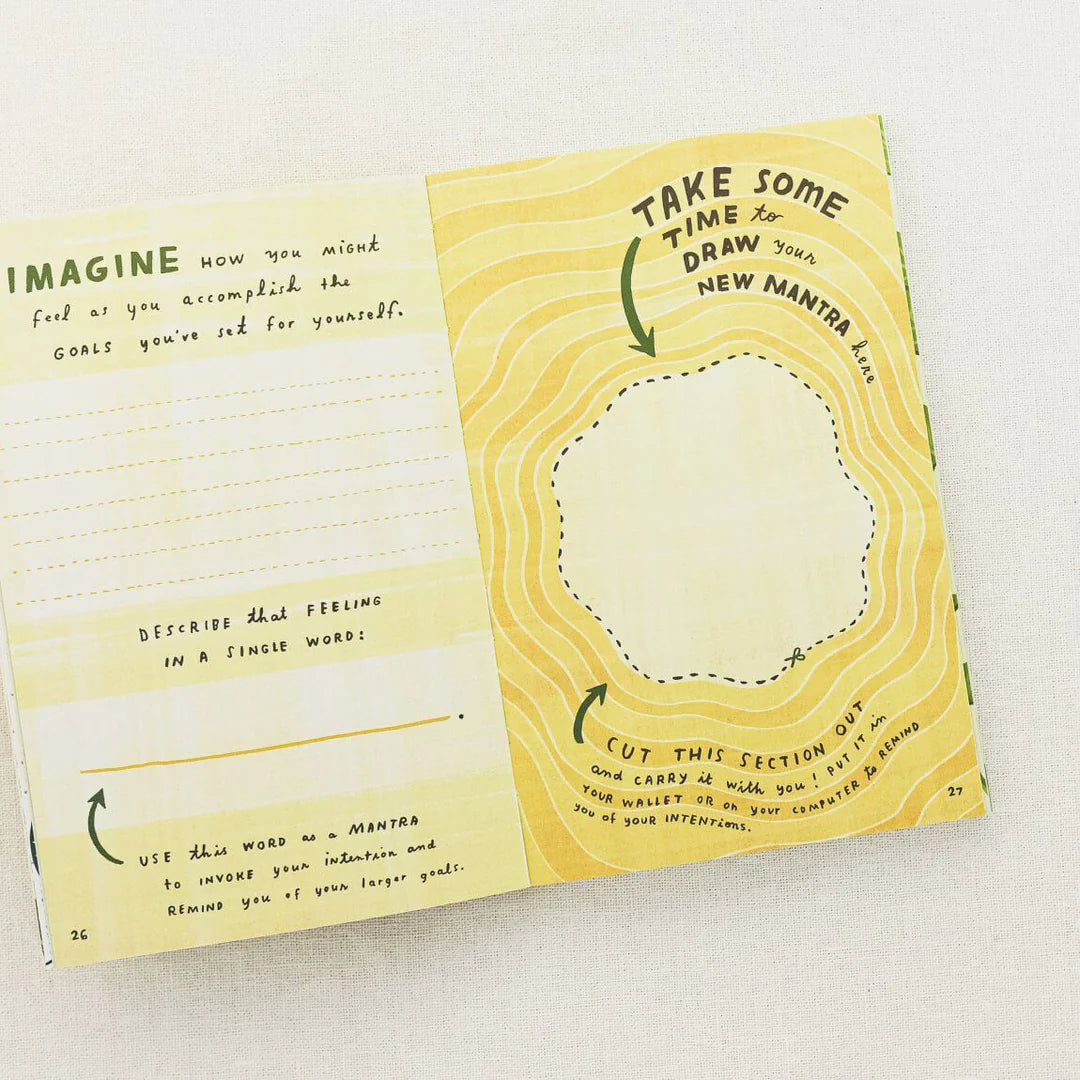 IMAGINE HOW you MIGHT
feel as you accomplish the
GOALS you've set for yourself.
DESCRIBE that FEELING
IN A SINGLE WORD:
.
USE this WORD as a MANTRA
to INVOKE your intention and
REMIND you of your larger goals.
26
TAKE SOME
TIME to
DRAW your
NEW MANTRA here
CUT THIS SECTION OUT
and CARRY it with you! PUT IT in
YOUR WALLET OR on your COMPUTER to REMIND
you of your INTENTIONS.
27